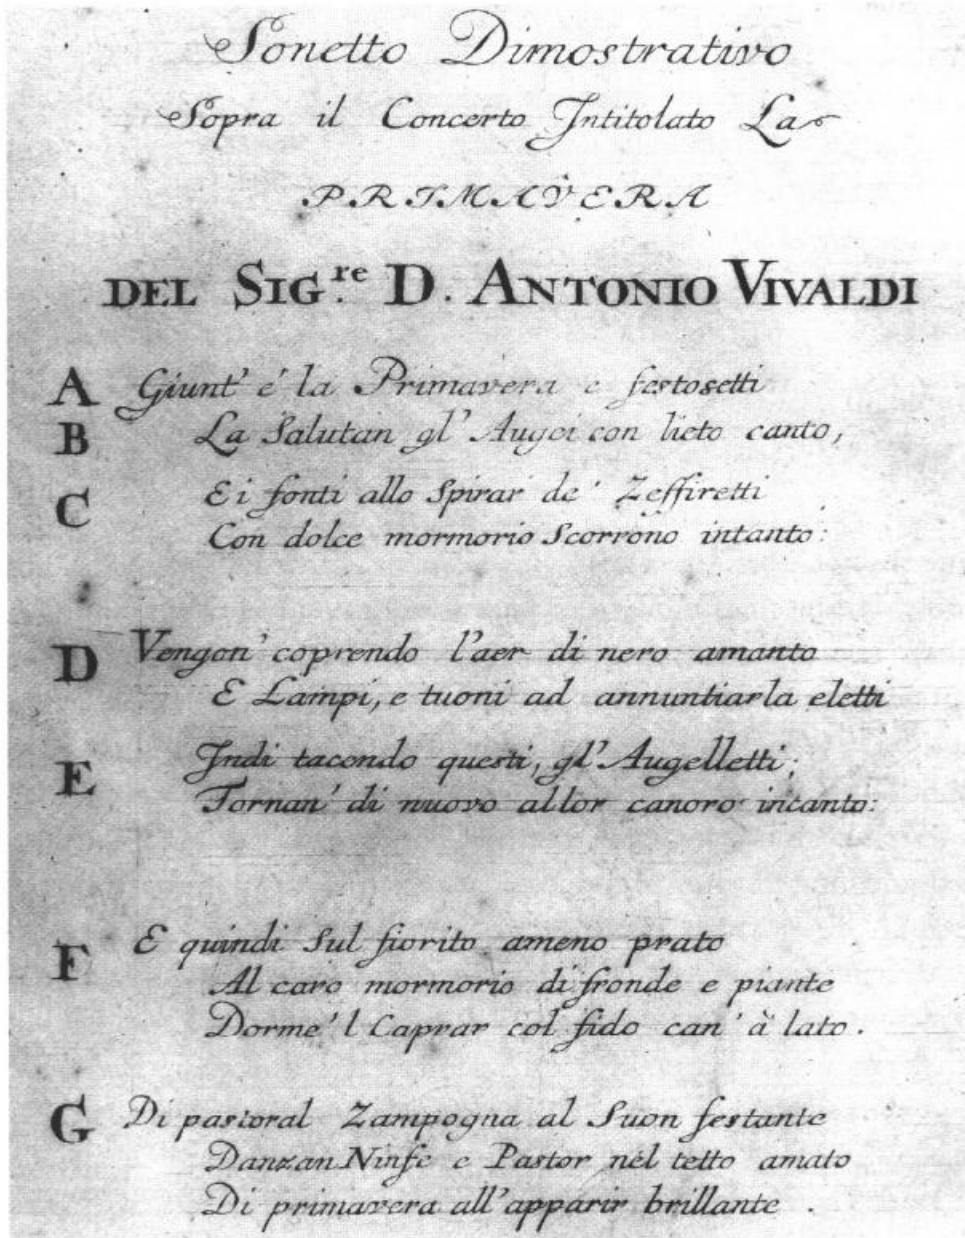 Sonetto Dimostrativo
Sopra il Concerto Intitolato La
PRIMAVERA
DEL SIG.re D. ANTONIO VIVALDI
A Giunt' è la Primavera e festosetti
B La Salutan gl' Augei con lieto canto,
C E i fonti allo Spirar de' Zeffiretti
Con dolce mormorio Scorrono intanto:
D Vengon' coprendo l'aer di nero amanto
E Lampi, e tuoni ad annuntiarla eletti
E Indi tacendo questi, gl' Augelletti;
Tornan' di nuovo al lor canoro incanto:
F E quindi Sul fiorito ameno prato
Al caro mormorio di fronde e piante
Dorme 'l Caprar col fido can' à lato.
G Di pastoral Zampogna al Suon festante
Danzan Ninfe e Pastor nel tetto amato
Di primavera all' apparir brillante.